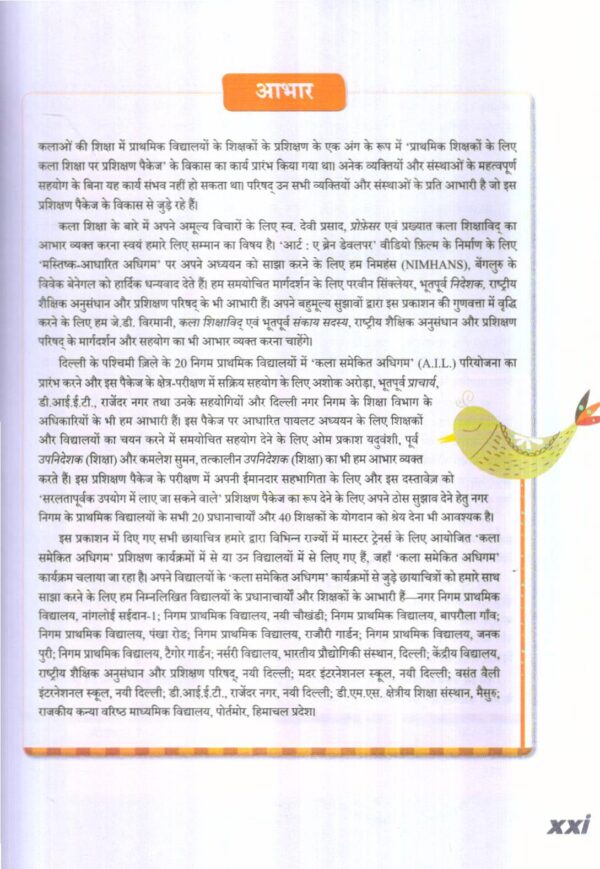 आभार
कलाओं की शिक्षा में प्राथमिक विद्यालयों के शिक्षकों के प्रशिक्षण के एक अंग के रूप में ‘प्राथमिक शिक्षकों के लिए
कला शिक्षा पर प्रशिक्षण पैकेज’ के विकास का कार्य प्रारंभ किया गया था। अनेक व्यक्तियों और संस्थाओं के महत्वपूर्ण
सहयोग के बिना यह कार्य संभव नहीं हो सकता था। परिषद् उन सभी व्यक्तियों और संस्थाओं के प्रति आभारी है जो इस
प्रशिक्षण पैकेज के विकास से जुड़े रहे हैं।
कला शिक्षा के बारे में अपने अमूल्य विचारों के लिए स्व. देवी प्रसाद, प्रोफ़ेसर एवं प्रख्यात कला शिक्षाविद् का
आभार व्यक्त करना स्वयं हमारे लिए सम्मान का विषय है। ‘आर्ट : ए ब्रेन डेवलपर’ वीडियो फ़िल्म के निर्माण के लिए
‘मस्तिष्क-आधारित अधिगम’ पर अपने अध्ययन को साझा करने के लिए हम निमहंस (NIMHANS), बेंगलुरु के
विवेक बेनेगल को हार्दिक धन्यवाद देते हैं। हम समयोचित मार्गदर्शन के लिए परवीन सिंक्लेयर, भूतपूर्व निदेशक, राष्ट्रीय
शैक्षिक अनुसंधान और प्रशिक्षण परिषद् के भी आभारी हैं। अपने बहुमूल्य सुझावों द्वारा इस प्रकाशन की गुणवत्ता में वृद्धि
करने के लिए हम जे.डी. विरमानी, कला शिक्षाविद् एवं भूतपूर्व संकाय सदस्य, राष्ट्रीय शैक्षिक अनुसंधान और प्रशिक्षण
परिषद् के मार्गदर्शन और सहयोग का भी आभार व्यक्त करना चाहेंगे।
दिल्ली के पश्चिमी ज़िले के 20 निगम प्राथमिक विद्यालयों में ‘कला समेकित अधिगम’ (A.I.L.) परियोजना का
प्रारंभ करने और इस पैकेज के क्षेत्र-परीक्षण में सक्रिय सहयोग के लिए अशोक अरोड़ा, भूतपूर्व प्राचार्य,
डी.आई.ई.टी., राजेंदर नगर तथा उनके सहयोगियों और दिल्ली नगर निगम के शिक्षा विभाग के
अधिकारियों के भी हम आभारी हैं। इस पैकेज पर आधारित पायलट अध्ययन के लिए शिक्षकों
और विद्यालयों का चयन करने में समयोचित सहयोग देने के लिए ओम प्रकाश यदुवंशी, पूर्व
उपनिदेशक (शिक्षा) और कमलेश सुमन, तत्कालीन उपनिदेशक (शिक्षा) का भी हम आभार व्यक्त
करते हैं। इस प्रशिक्षण पैकेज के परीक्षण में अपनी ईमानदार सहभागिता के लिए और इस दस्तावेज़ को
‘सरलतापूर्वक उपयोग में लाए जा सकने वाले’ प्रशिक्षण पैकेज का रूप देने के लिए अपने ठोस सुझाव देने हेतु नगर
निगम के प्राथमिक विद्यालयों के सभी 20 प्रधानाचार्यों और 40 शिक्षकों के योगदान को श्रेय देना भी आवश्यक है।
इस प्रकाशन में दिए गए सभी छायाचित्र हमारे द्वारा विभिन्न राज्यों में मास्टर ट्रेनर्स के लिए आयोजित ‘कला
समेकित अधिगम’ प्रशिक्षण कार्यक्रमों में से या उन विद्यालयों में से लिए गए हैं, जहाँ ‘कला समेकित अधिगम’
कार्यक्रम चलाया जा रहा है। अपने विद्यालयों के ‘कला समेकित अधिगम’ कार्यक्रमों से जुड़े छायाचित्रों को हमारे साथ
साझा करने के लिए हम निम्नलिखित विद्यालयों के प्रधानाचार्यों और शिक्षकों के आभारी हैं—नगर निगम प्राथमिक
विद्यालय, नांगलोई सईदान-1; निगम प्राथमिक विद्यालय, नयी चौखंडी; निगम प्राथमिक विद्यालय, बापरौला गाँव;
निगम प्राथमिक विद्यालय, पंखा रोड; निगम प्राथमिक विद्यालय, राजौरी गार्डन; निगम प्राथमिक विद्यालय, जनक
पुरी; निगम प्राथमिक विद्यालय, टैगोर गार्डन; नर्सरी विद्यालय, भारतीय प्रौद्योगिकी संस्थान, दिल्ली; केंद्रीय विद्यालय,
राष्ट्रीय शैक्षिक अनुसंधान और प्रशिक्षण परिषद्, नयी दिल्ली; मदर इंटरनेशनल स्कूल, नयी दिल्ली; वसंत वैली
इंटरनेशनल स्कूल, नयी दिल्ली; डी.आई.ई.टी., राजेंदर नगर, नयी दिल्ली; डी.एम.एस. क्षेत्रीय शिक्षा संस्थान, मैसुरु;
राजकीय कन्या वरिष्ठ माध्यमिक विद्यालय, पोर्तमोर, हिमाचल प्रदेश।
xxi